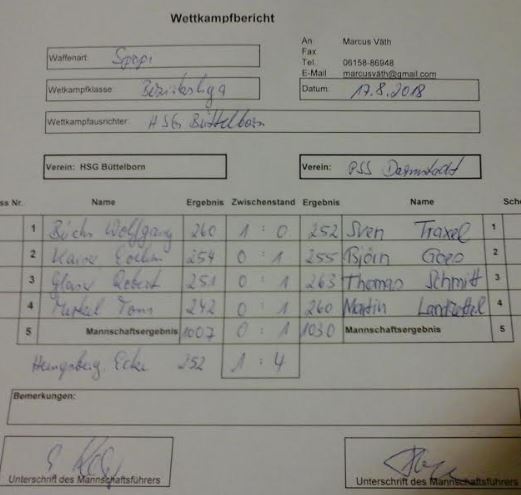 Wettkampfbericht
An Marcus Väth
Fax
Tel. 06158-86948
E-Mail marcusväth@gmail.com
Waffenart: Spopi
Wetkampfklasse: Bezirksliga
Datum: 17.8.2018
Wettkampfausrichter: HSG Büttelborn
Verein: HSG Büttelborn Verein: PSS Darmstadt
ss Nr. Name Ergebnis Zwischenstand Ergebnis Name Sch
1 Wolfgang 260 1 : 0 252 Sven Traxel 1
2 254 0 : 1 255 Björn Goro 2
3 Glaser Robert 251 0 : 1 263 Thomas Schmitt 3
4 Merkel Toni 242 0 : 1 260 Martin 4
5 Mannschaftsergebnis 1007 0 : 1 1030 Mannschaftsergebnis 5
252 1 : 4
Bemerkungen:
Unterschrift des Mannschaftsführers Unterschrift des Mannschaftsführers